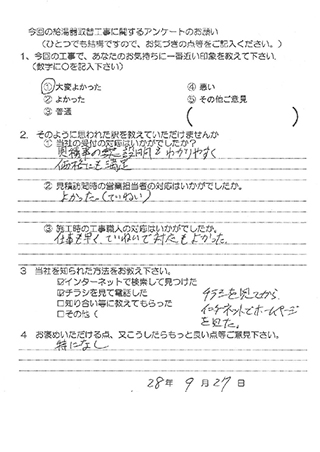 今回の給湯器取替工事に関するアンケートのお願い
(ひとつでも結構ですので、お気づきの点等をご記入ください。)
1、今回の工事で、あなたのお気持ちに一番近い印象を教えて下さい。
(数字に〇を記入下さい)
①大変よかった ④悪い
②よかった ⑤その他ご意見
③普通 ( )
2. そのように思われた訳を教えていただけませんか
①当社の受付の対応はいかがでしたか?
見積書の 説明もわかりやすく
価格にも満足
②見積訪問時の営業担当者の対応はいかがでしたか。
よかった(ていねい)
③施工時の工事職人の対応はいかがでしたか。
仕事も早く ていねいで対応もよかった。
3 当社を知られた方法をお教え下さい。
☑インターネットで検索して見つけた
☑チラシを見て電話した
□知り合い等に教えてもらった
□その他(
チラシを見てから
インターネットでホームページ
を見た。
4 お褒めいただける点、又こうしたらもっと良い点等ご意見下さい。
特になし
28年 9月 27日